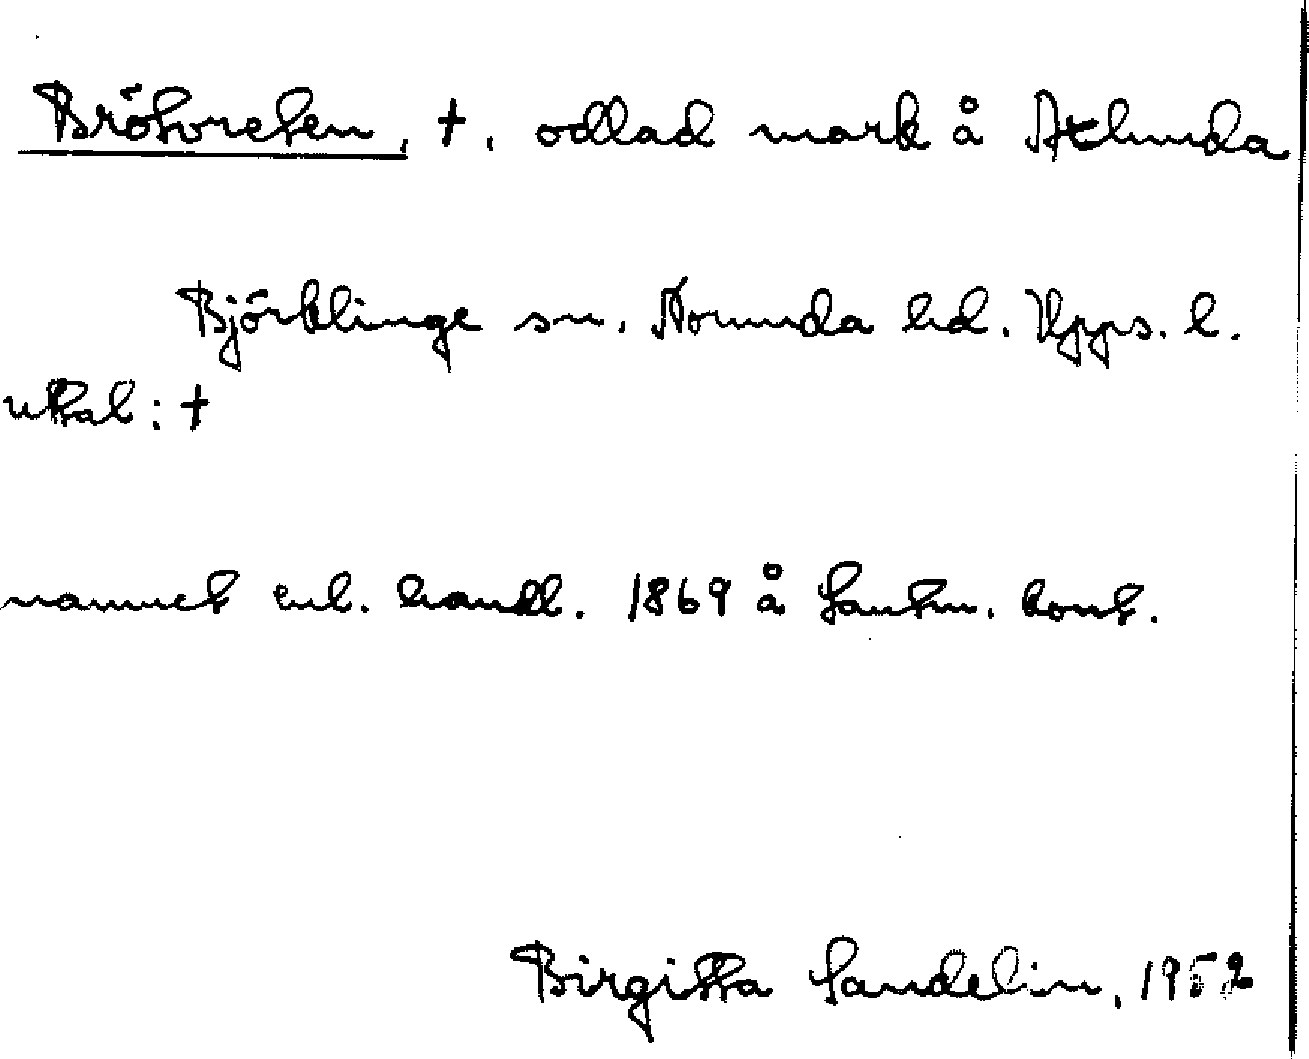 Brötvreten, †. odlad mark å Axlunda
Björklinge sn. Norunda hd. Upps. l.
uttal: †
namnet enl. handl. 1869 å Lantm. kont.
Birgitta Sandelin, 1952